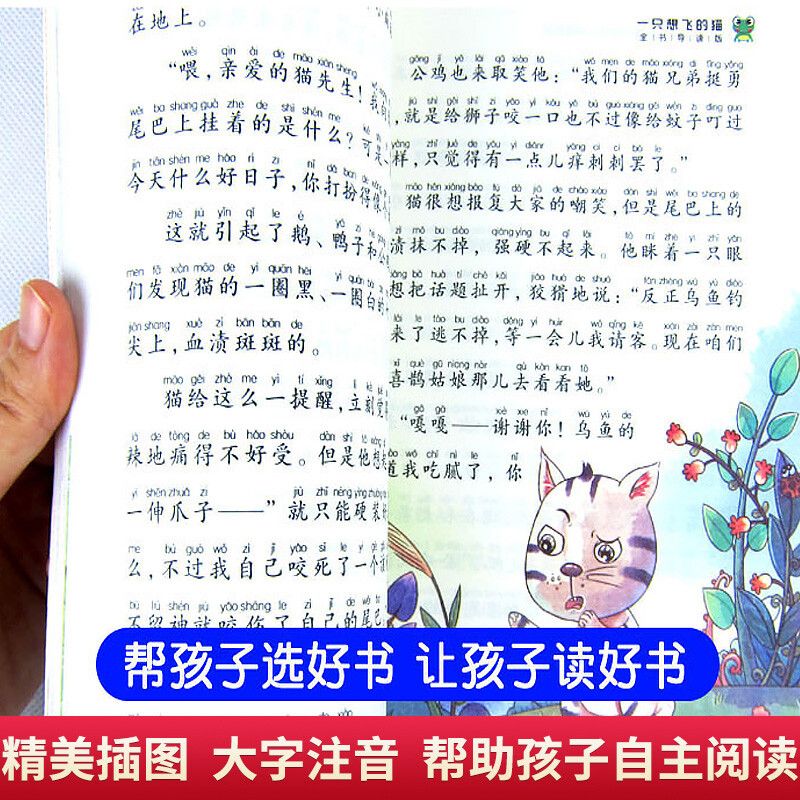 在地上。
wèi qīn ài de māo xiān sheng
“喂，亲爱的猫先生！
wěi ba shang guà zhe de shì shén me
尾巴上挂着的是什么？可是
jīn tiān shén me hǎo rì zi nǐ dǎ ban de
今天什么好日子，你打扮得像
zhè jiù yǐn qǐ le é yā zi
这就引起了鹅、鸭子和公
men fā xiàn māo de yì quān hēi yì quān bái de
们发现猫的一圈黑、一圈白的
jiān shang xuè zì bān bān de
尖上，血渍斑斑的。
māo gěi zhè me yì tí xǐng lì kè
猫给这么一提醒，立刻觉
là de tòng de bù hǎo shòu dàn shì tā
辣地痛得不好受。但是他想
yì shēn zhuǎ zi jiù zhǐ néng yìng zhuāng
一伸爪子——”就只能硬装
me bú guò wǒ zì jǐ yǎo sǐ le yí gè
么，不过我自己咬死了一个
bù liú shén jiù yǎo shāng le zì jǐ de wěi ba
不留神就咬伤了自己的尾巴
一只想飞的猫
全书导读版
gōng jī yě lái qǔ xiào tā wǒ men de māo xiōng dì tǐng yǒng
公鸡也来取笑他：“我们的猫兄弟挺勇
jiù shì gěi shī zi yǎo yì kǒu yě bú guò xiàng gěi wén zi dīng guò
，就是给狮子咬一口也不过像给蚊子叮过
yàng zhǐ jué de yǒu yì diǎnr yǎng cì cì bà le
样，只觉得有一点儿痒刺刺罢了。”
māo hěn xiǎng bào fù dà jiā de cháo xiào dàn shì wěi ba shang de
猫很想报复大家的嘲笑，但是尾巴上的
zì mǒ bú diào qiáng yìng bu qǐ lái tā mī zhe yì zhī yǎn
渍抹不掉，强硬不起来。他眯着一只眼
xiǎng bǎ huà tí chě kāi jiǎo huá de shuō fǎn zhèng wū yú diào
想把话题扯开，狡猾地说：“反正乌鱼钓
lái le táo bu diào děng yí huìr wǒ qǐng kè xiàn zài zán men
来了逃不掉，等一会儿我请客。现在咱们
xǐ què gū niang nàr qù kàn kan tā
喜鹊姑娘那儿去看看她。”
gā gā xiè xie nǐ wū yú de
“嘎嘎——谢谢你！乌鱼的
dào wǒ chī nì le nǐ
道我吃腻了，你
帮孩子选好书 让孩子读好书
精美插图 大字注音 帮助孩子自主阅读